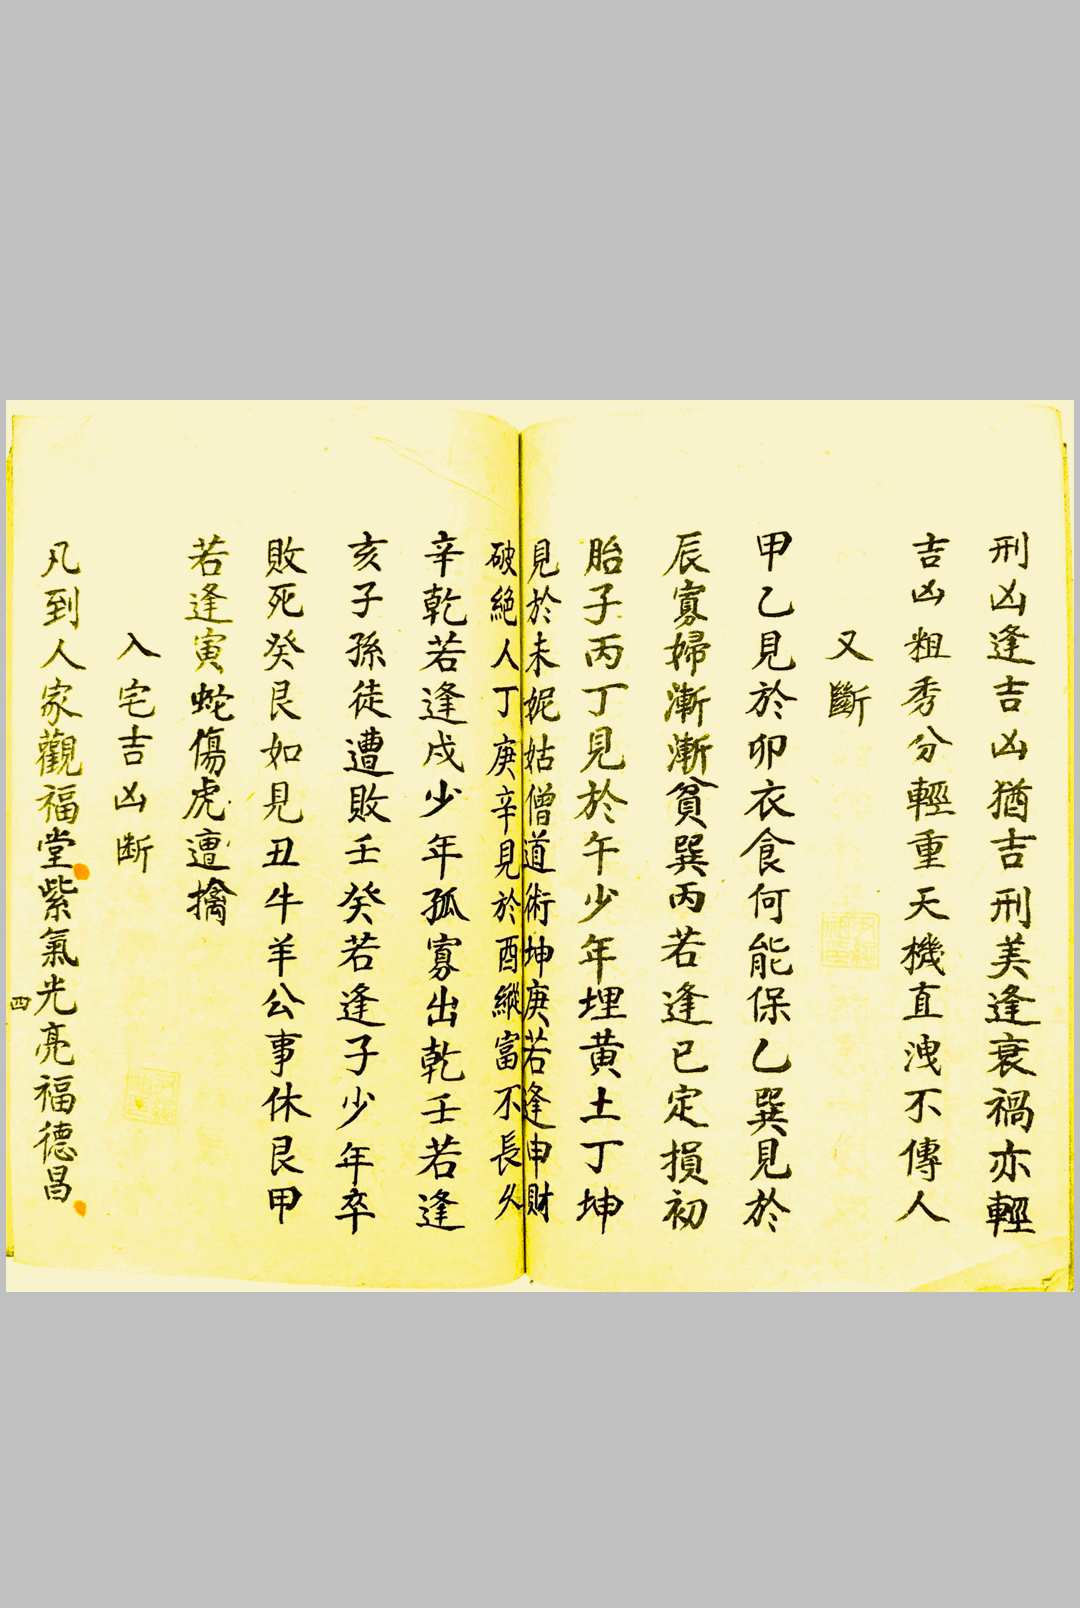 刑凶逢吉凶猶吉刑美逢衰禍亦輕
吉凶粗秀分輕重天機直洩不傳人
又斷
甲乙見於卯衣食何能保乙巽見於
辰寡婦漸漸貧巽丙若逢巳定損初
胎子丙丁見於午少年埋黃土丁坤
見於未妮姑僧道術坤庚若逢申財
破絕人丁庚辛見於酉縱富不長久
辛乾若逢戍少年孤寡出乾壬若逢
亥子孫徒遭敗壬癸若逢子少年卒
敗死癸艮如見丑牛羊公事休艮甲
若逢寅蛇傷虎遭擒
入宅吉凶断
凡到人家觀福堂紫氣光亮福德昌
四